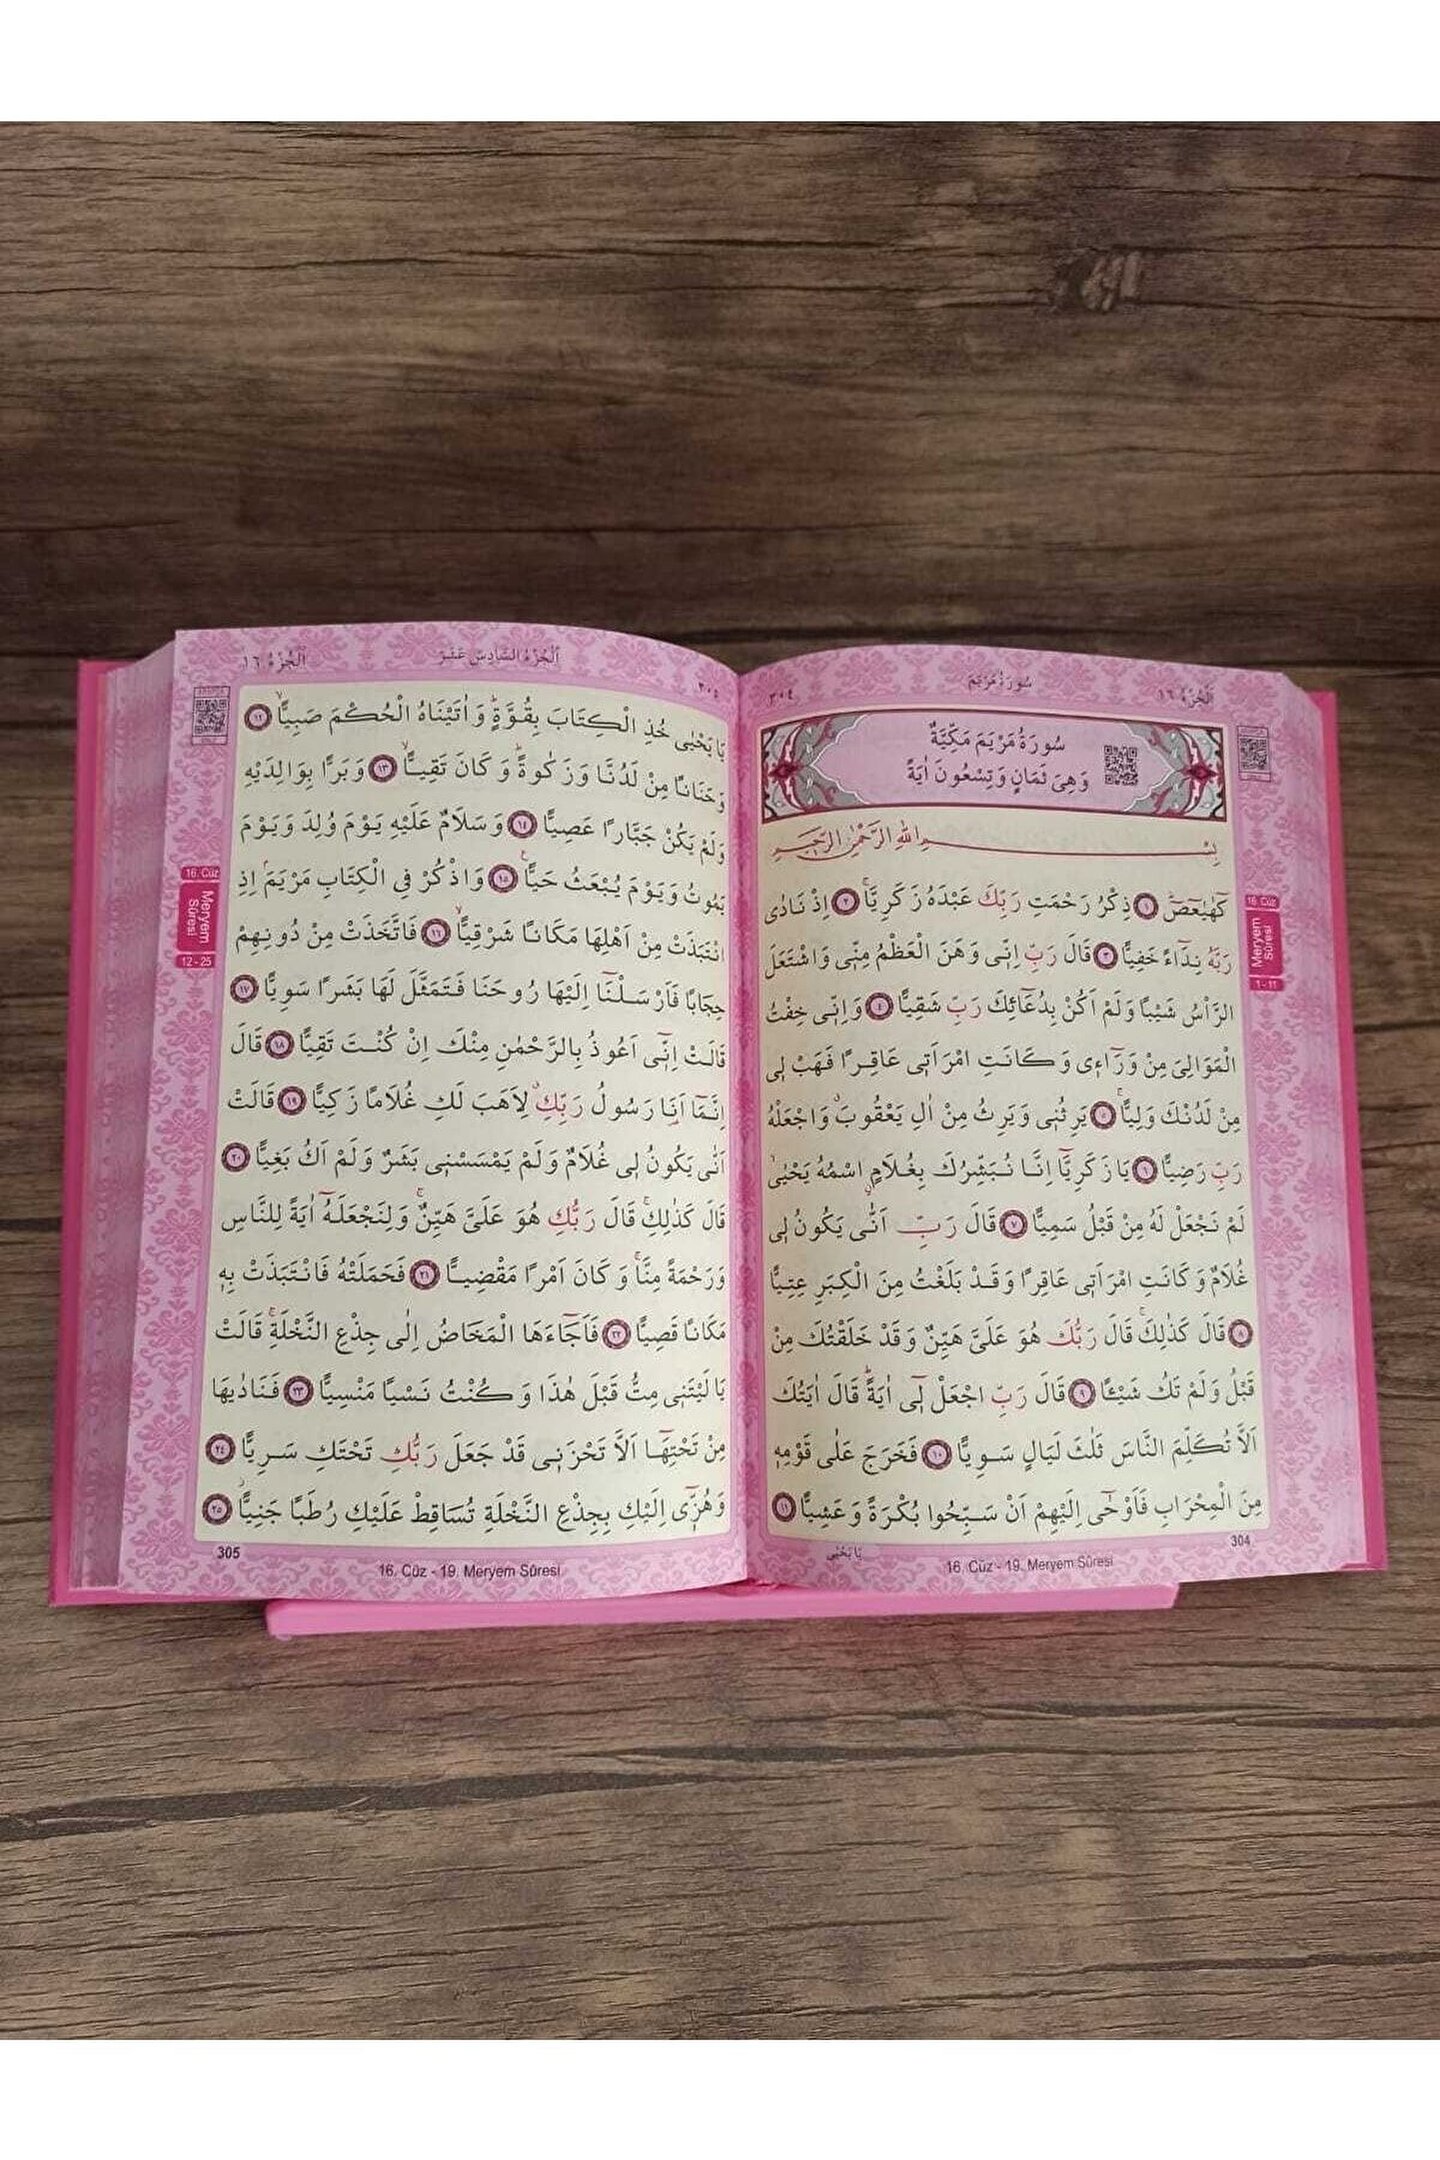 سُورَةُ مَرْيَمَ
اَلْجُزْءُ ١٦
٣٠٤
سُورَةُ مَرْيَمَ مَكِّيَّةٌ
وَهِىَ ثَمَانٍ وَتِسْعُونَ اٰيَةً
بِسْمِ اللّٰهِ الرَّحْمٰنِ الرَّحِيمِ
كٓهٰيٰعٓصٓ ١ ذِكْرُ رَحْمَتِ رَبِّكَ عَبْدَهُ زَكَرِيَّا ٢ اِذْ نَادٰى
رَبَّهُ نِدَٓاءً خَفِيًّا ٣ قَالَ رَبِّ اِنّٖى وَهَنَ الْعَظْمُ مِنّٖى وَاشْتَعَلَ
الرَّأْسُ شَيْبًا وَلَمْ اَكُنْ بِدُعَٓائِكَ رَبِّ شَقِيًّا ٤ وَاِنّٖى خِفْتُ
الْمَوَالِىَ مِنْ وَرَٓاءٖى وَكَانَتِ امْرَاَتٖى عَاقِرًا فَهَبْ لٖى
مِنْ لَدُنْكَ وَلِيًّا ٥ يَرِثُنٖى وَيَرِثُ مِنْ اٰلِ يَعْقُوبَ وَاجْعَلْهُ
رَبِّ رَضِيًّا ٦ يَا زَكَرِيَّٓا اِنَّا نُبَشِّرُكَ بِغُلَامٍ اسْمُهُ يَحْيٰى
لَمْ نَجْعَلْ لَهُ مِنْ قَبْلُ سَمِيًّا ٧ قَالَ رَبِّ اَنّٰى يَكُونُ لٖى
غُلَامٌ وَكَانَتِ امْرَاَتٖى عَاقِرًا وَقَدْ بَلَغْتُ مِنَ الْكِبَرِ عِتِيًّا
٨ قَالَ كَذٰلِكَ قَالَ رَبُّكَ هُوَ عَلَىَّ هَيِّنٌ وَقَدْ خَلَقْتُكَ مِنْ
قَبْلُ وَلَمْ تَكُ شَيْـًٔا ٩ قَالَ رَبِّ اجْعَلْ لٖٓى اٰيَةً قَالَ اٰيَتُكَ
اَلَّا تُكَلِّمَ النَّاسَ ثَلٰثَ لَيَالٍ سَوِيًّا ١٠ فَخَرَجَ عَلٰى قَوْمِهٖ
مِنَ الْمِحْرَابِ فَاَوْحٰٓى اِلَيْهِمْ اَنْ سَبِّحُوا بُكْرَةً وَعَشِيًّا ١١
يَا يَحْيٰى
16. Cüz
Meryem
Sûresi
1 - 11
304
16. Cüz - 19. Meryem Sûresi
اَلْجُزْءُ السَّادِسَ عَشَرَ
اَلْجُزْءُ ١٦
٣٠٥
يَا يَحْيٰى خُذِ الْكِتَابَ بِقُوَّةٍ وَاٰتَيْنَاهُ الْحُكْمَ صَبِيًّا ١٢
وَحَنَانًا مِنْ لَدُنَّا وَزَكٰوةً وَكَانَ تَقِيًّا ١٣ وَبَرًّا بِوَالِدَيْهِ
وَلَمْ يَكُنْ جَبَّارًا عَصِيًّا ١٤ وَسَلَامٌ عَلَيْهِ يَوْمَ وُلِدَ وَيَوْمَ
يَمُوتُ وَيَوْمَ يُبْعَثُ حَيًّا ١٥ وَاذْكُرْ فِى الْكِتَابِ مَرْيَمَ اِذِ
انْتَبَذَتْ مِنْ اَهْلِهَا مَكَانًا شَرْقِيًّا ١٦ فَاتَّخَذَتْ مِنْ دُونِهِمْ
حِجَابًا فَاَرْسَلْنَٓا اِلَيْهَا رُوحَنَا فَتَمَثَّلَ لَهَا بَشَرًا سَوِيًّا ١٧
قَالَتْ اِنّٖٓى اَعُوذُ بِالرَّحْمٰنِ مِنْكَ اِنْ كُنْتَ تَقِيًّا ١٨ قَالَ
اِنَّمَٓا اَنَا رَسُولُ رَبِّكِ لِاَهَبَ لَكِ غُلَامًا زَكِيًّا ١٩ قَالَتْ
اَنّٰى يَكُونُ لٖى غُلَامٌ وَلَمْ يَمْسَسْنٖى بَشَرٌ وَلَمْ اَكُ بَغِيًّا ٢٠
قَالَ كَذٰلِكِ قَالَ رَبُّكِ هُوَ عَلَىَّ هَيِّنٌ وَلِنَجْعَلَهُٓ اٰيَةً لِلنَّاسِ
وَرَحْمَةً مِنَّا وَكَانَ اَمْرًا مَقْضِيًّا ٢١ فَحَمَلَتْهُ فَانْتَبَذَتْ بِهٖ
مَكَانًا قَصِيًّا ٢٢ فَاَجَٓاءَهَا الْمَخَاضُ اِلٰى جِذْعِ النَّخْلَةِ قَالَتْ
يَا لَيْتَنٖى مِتُّ قَبْلَ هٰذَا وَكُنْتُ نَسْيًا مَنْسِيًّا ٢٣ فَنَادٰيهَا
مِنْ تَحْتِهَٓا اَلَّا تَحْزَنٖى قَدْ جَعَلَ رَبُّكِ تَحْتَكِ سَرِيًّا ٢٤
وَهُزّٖٓى اِلَيْكِ بِجِذْعِ النَّخْلَةِ تُسَاقِطْ عَلَيْكِ رُطَبًا جَنِيًّا ٢٥
16. Cüz
Meryem
Sûresi
12 - 25
305
16. Cüz - 19. Meryem Sûresi